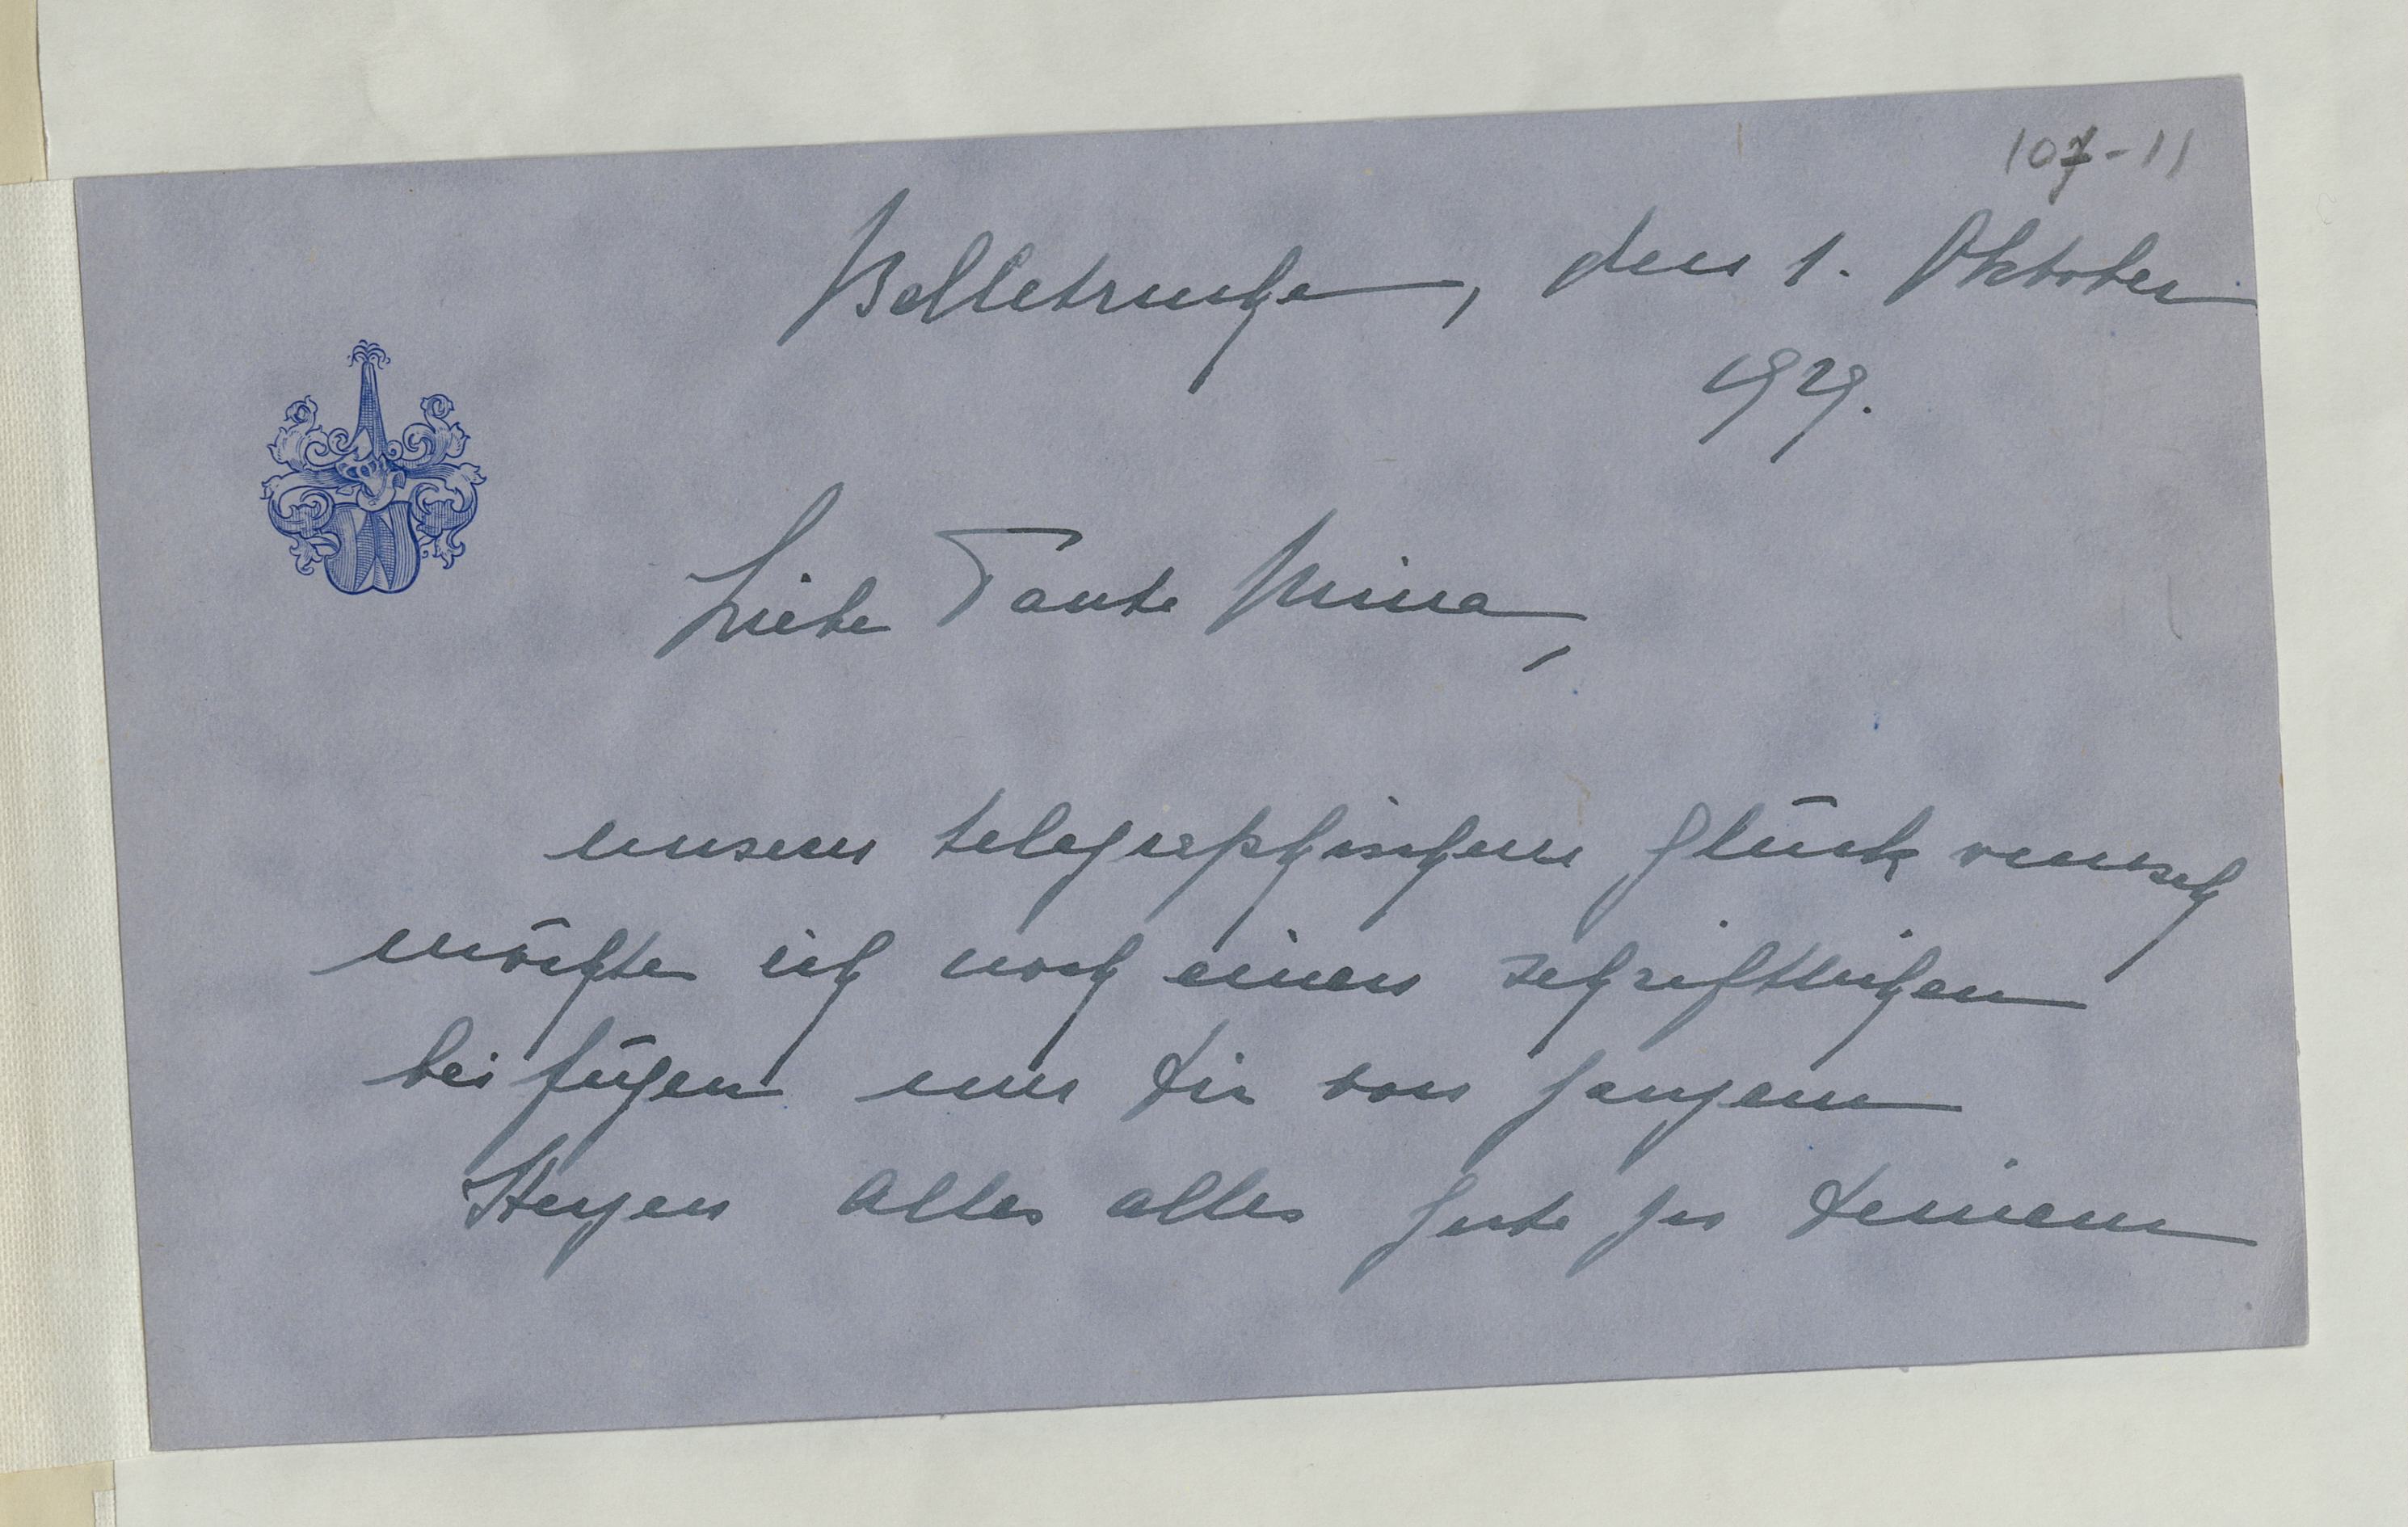 107-11
Belletruche, den 1. Oktober
1929.
Liebe Tante Mina,
unserm telegraphischem Glückwunsch
möchte ich noch einen schriftlichen
beifügen um Dir von ganzem
Herzen Alles alles Gute zu Deinem